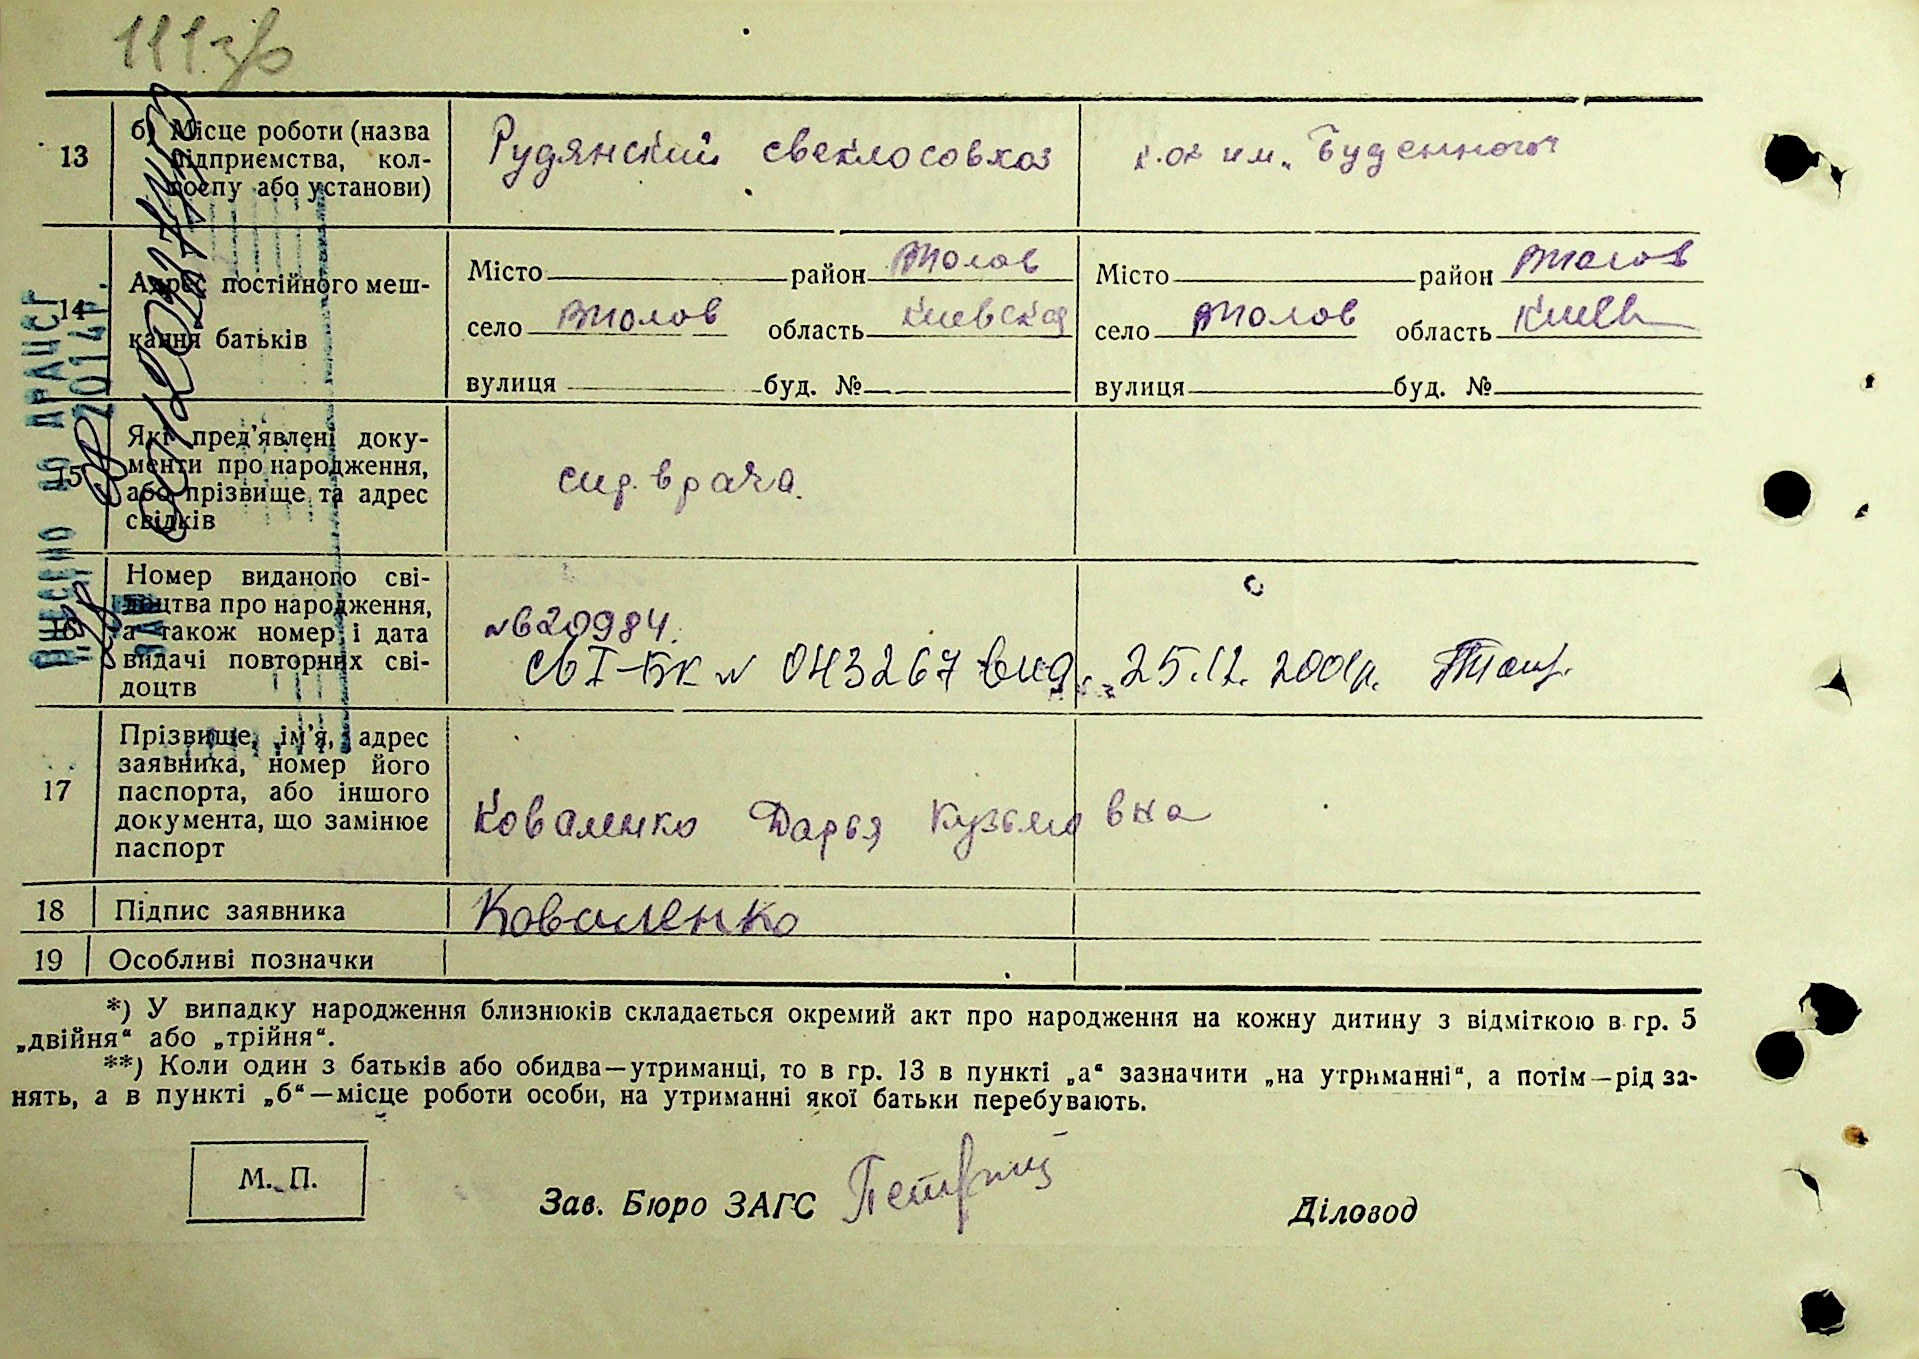 111 зв
13 б) Місце роботи (назва
підприємства, кол-
госпу або установи)
Рудянский свеклосовхоз
к-оз им. Буденного
14 Адрес постійного меш-
кання батьків
Місто район Жолов
село Жолов область Киевская
вулиця буд. №
Місто район Жолов
село Жолов область Киев
вулиця буд. №
15 Які пред'явлені доку-
менти про народження,
або прізвище та адрес
свідків
спр. врача.
16 Номер виданого сві-
доцтва про народження,
а також номер і дата
видачі повторних сві-
доцтв
№ 620984.
св І-БК № 043267 вид. 25.12.2001р.
17 Прізвище, ім'я, адрес
заявника, номер його
паспорта, або іншого
документа, що замінює
паспорт
Коваленко Дарья Кузьмовна
18 Підпис заявника
Коваленко
19 Особливі позначки
*) У випадку народження близнюків складається окремий акт про народження на кожну дитину з відміткою в гр. 5
„двійня“ або „трійня“.
**) Коли один з батьків або обидва—утриманці, то в гр. 13 в пункті „а“ зазначити „на утриманні“, а потім—рід за-
нять, а в пункті „б“—місце роботи особи, на утриманні якої батьки перебувають.
М. П.
Зав. Бюро ЗАГС
Діловод
ВНЕСЕНО ДО ДРАЦСГ
2014р.